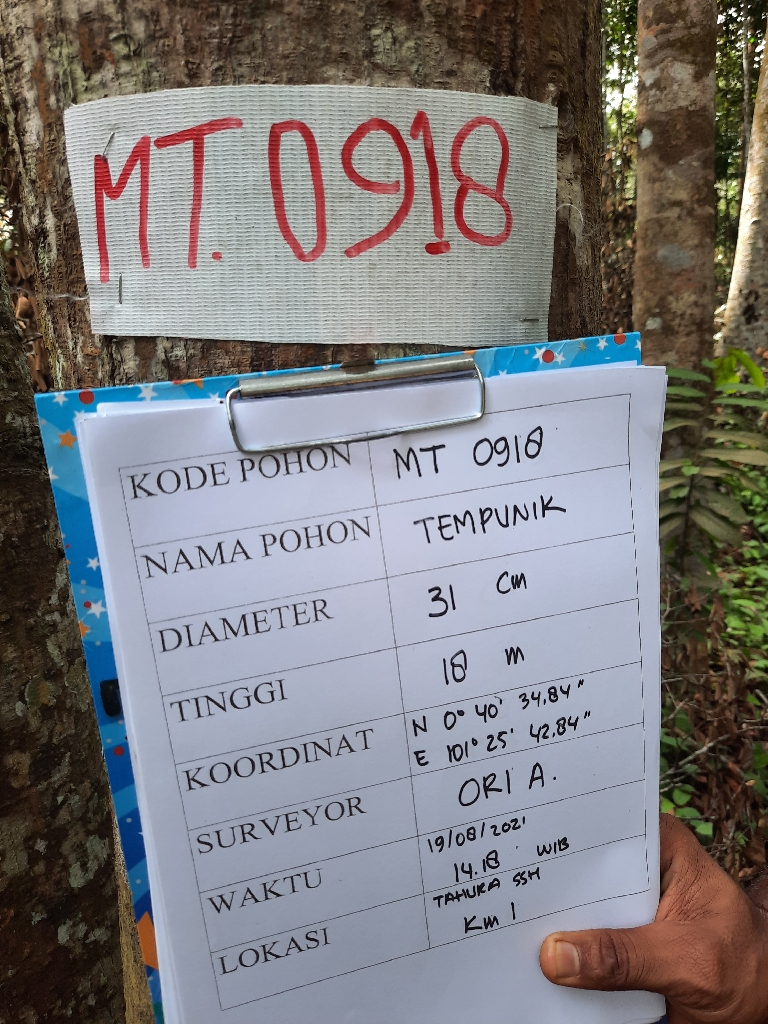 MT. 0918
KODE POHON MT 0918
NAMA POHON TEMPUNIK
DIAMETER 31 cm
TINGGI 18 m
KOORDINAT N 0° 40' 34.84"
E 101° 25' 42.84"
SURVEYOR ORI A.
WAKTU 19/08/2021
14.18 WIB
LOKASI TAHURA SSH
Km 1